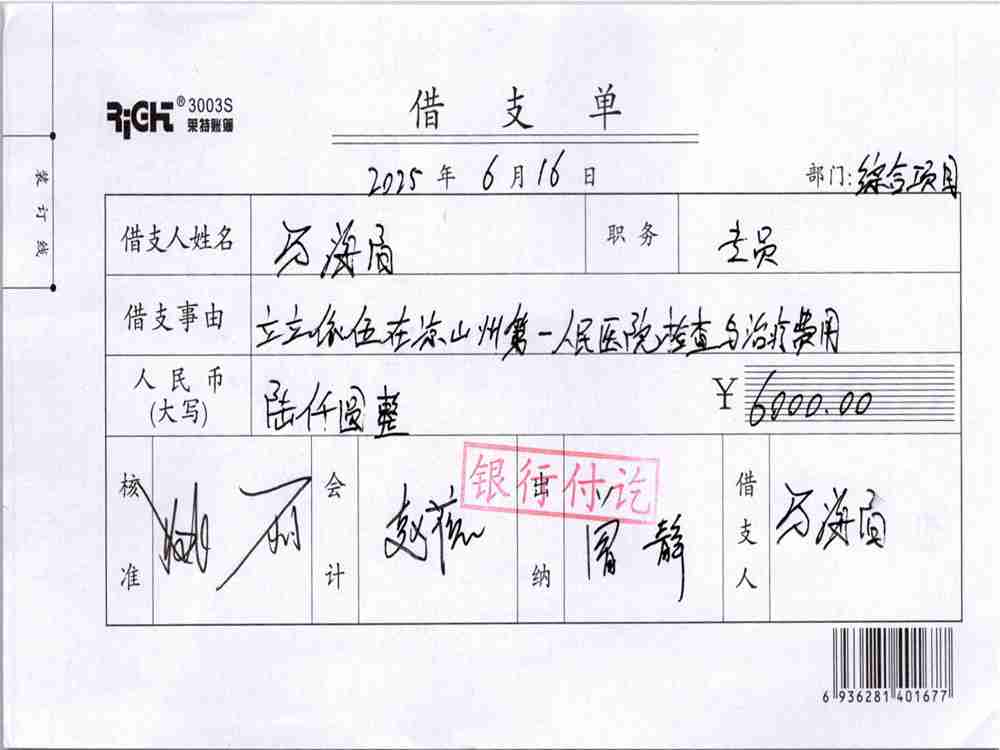 RiGHT® 3003S
莱特账簿
借支单
2025年6月16日
部门:综合项目
装订线
借支人姓名
马海眉
职务
专员
借支事由
立立依伍在凉山州第一人民医院检查与治疗费用
人民币
(大写)
陆仟圆整
¥6000.00
核准
会计
赵
银行付讫
出纳
静
借支人
马海眉
6 936281 401677